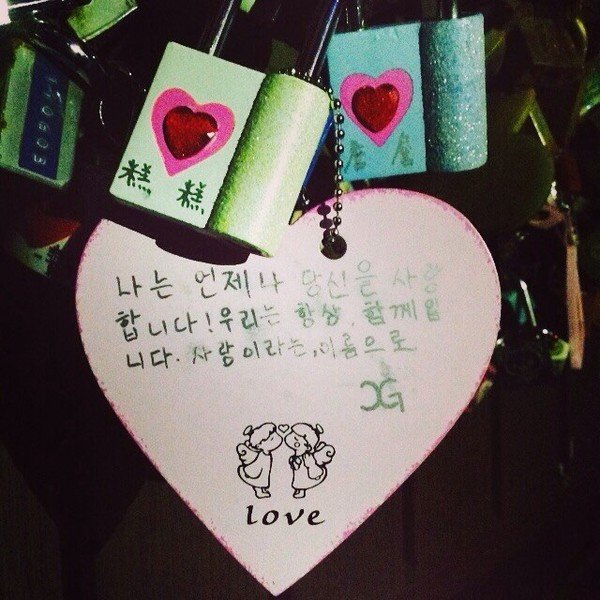 糕 糕
나는 언제나 당신을 사랑
합니다! 우리는 항상, 함께입
니다. 사랑이라는, 이름으로
XG
love